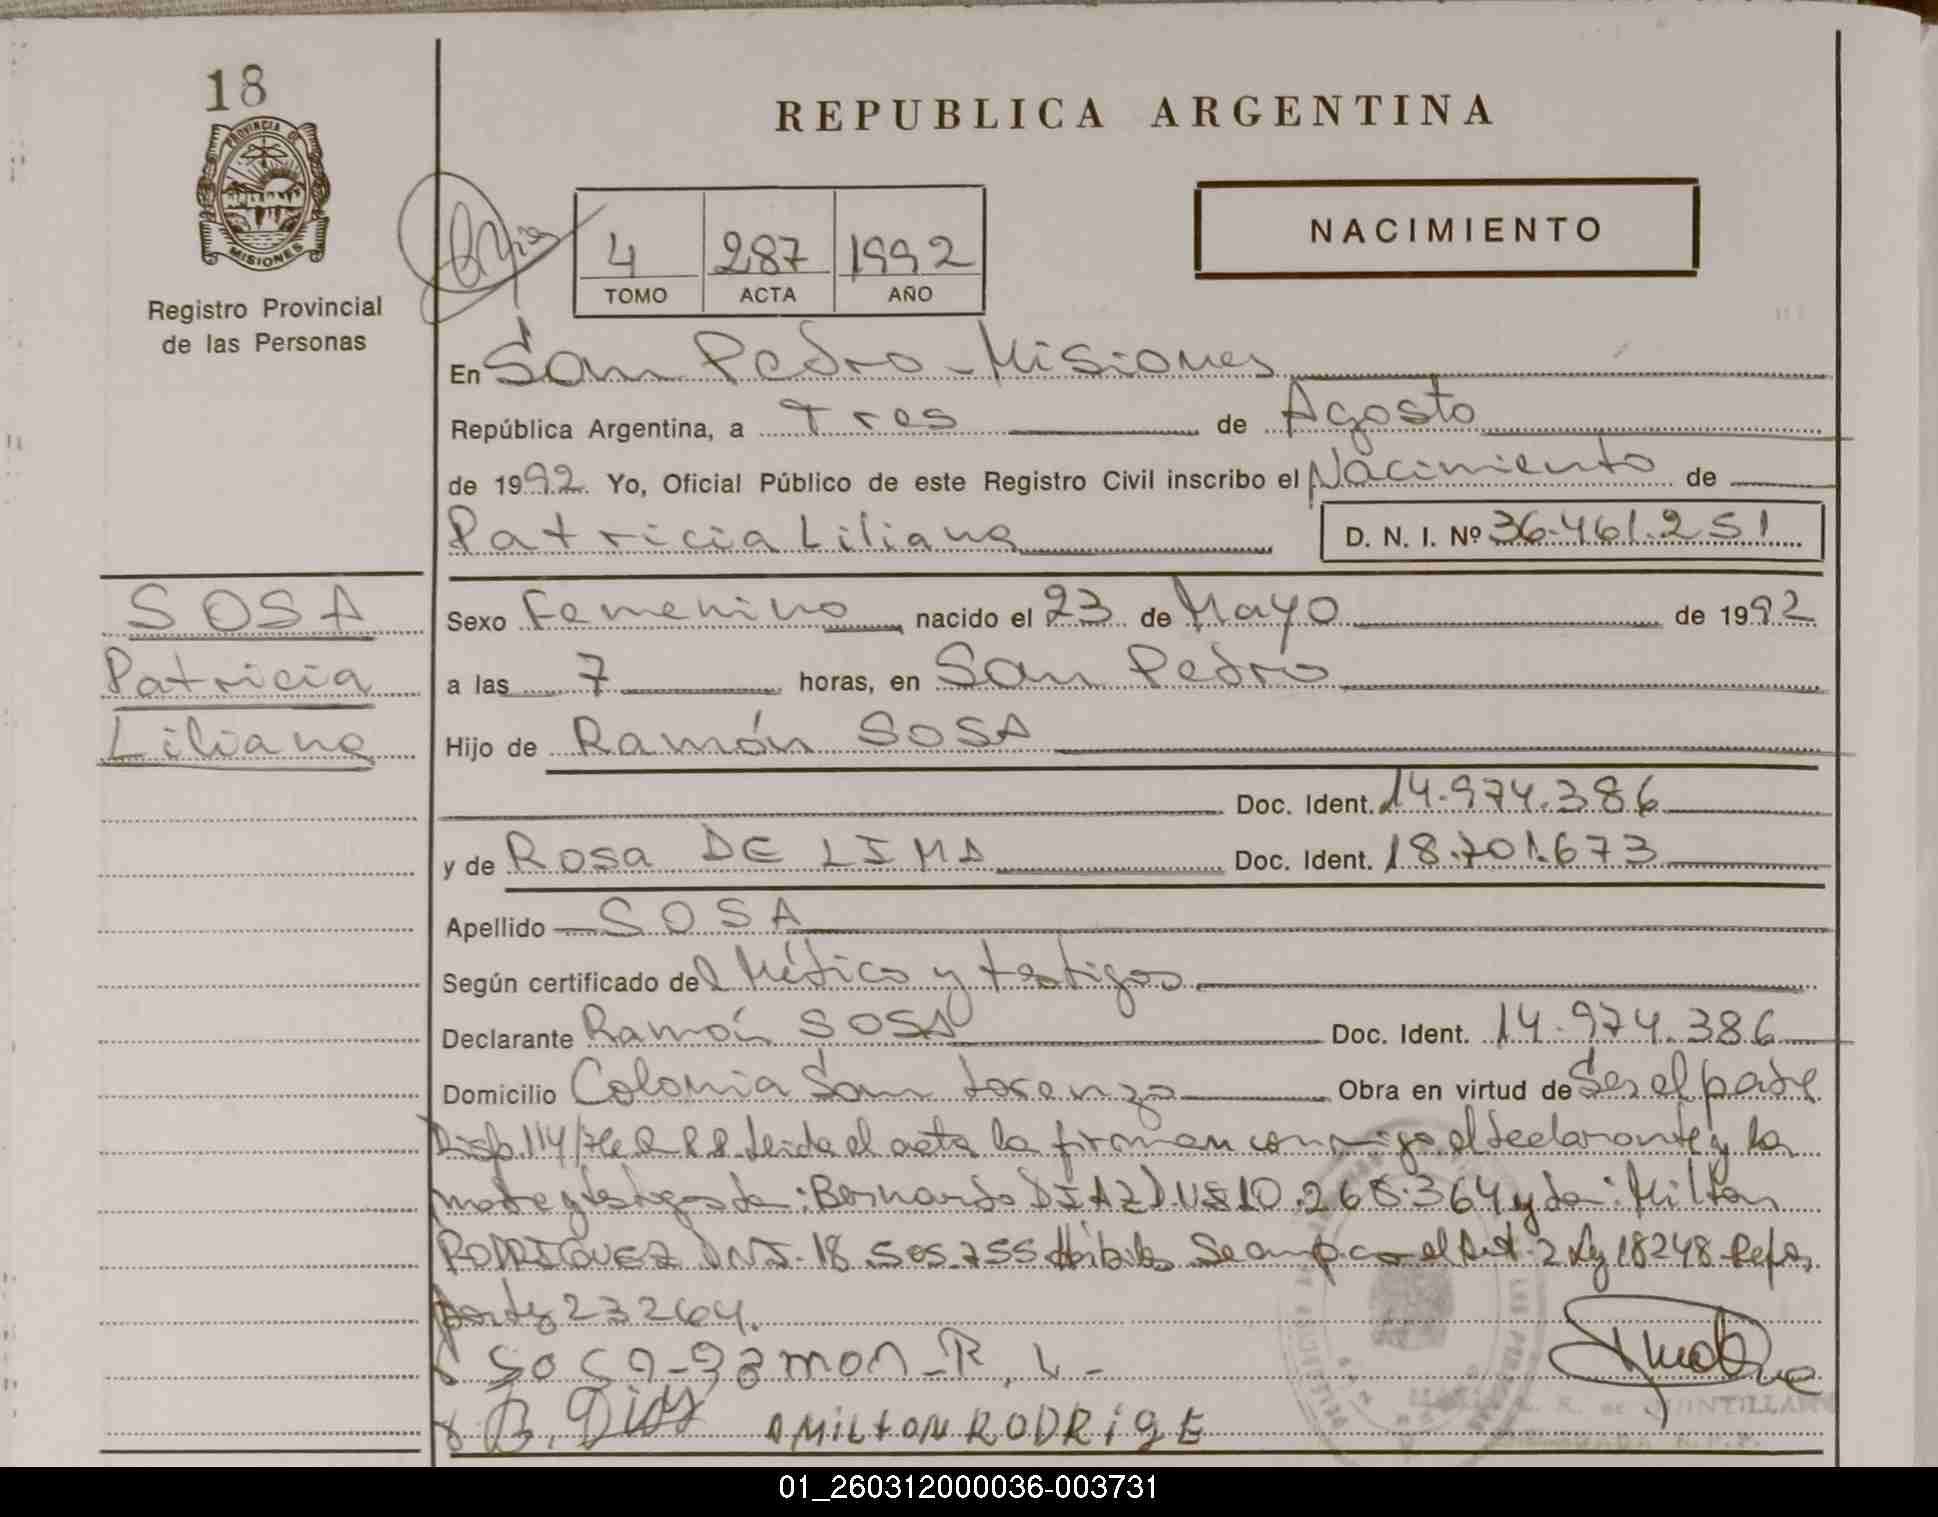 18
PROVINCIA DE
MISIONES
Registro Provincial
de las Personas
REPUBLICA ARGENTINA
NACIMIENTO
4 287 1992
TOMO ACTA AÑO
En San Pedro - Misiones
República Argentina, a Tres de Agosto
de 1992. Yo, Oficial Público de este Registro Civil inscribo el Nacimiento de
Patricia Liliana D. N. I. Nº 36.461.251
SOSA
Patricia
Liliana
Sexo Femenino nacido el 23 de Mayo de 1992
a las 7 horas, en San Pedro
Hijo de Ramón SOSA
Doc. Ident. 14.974.386
y de Rosa DE LIMA Doc. Ident. 18.701.673
Apellido SOSA
Según certificado del Médico y testigos
Declarante Ramón SOSA Doc. Ident. 14.974.386
Domicilio Colonia San Lorenzo Obra en virtud de Ser el padre
Disp. 114/76 R P P Leida el acta la firman conmigo el declarante y la
madre y testigos Bernardo DIAZ DNI 10.268.364 y Milton
RODRIGUEZ DNI. 18.505.755 Hábiles Se amp. con el Art. 2 Ley 18248 Refo.
por Ley 23264.
Sosa Ramon R. L.
B. Diaz AMILTON RODRIGE
01_260312000036-003731